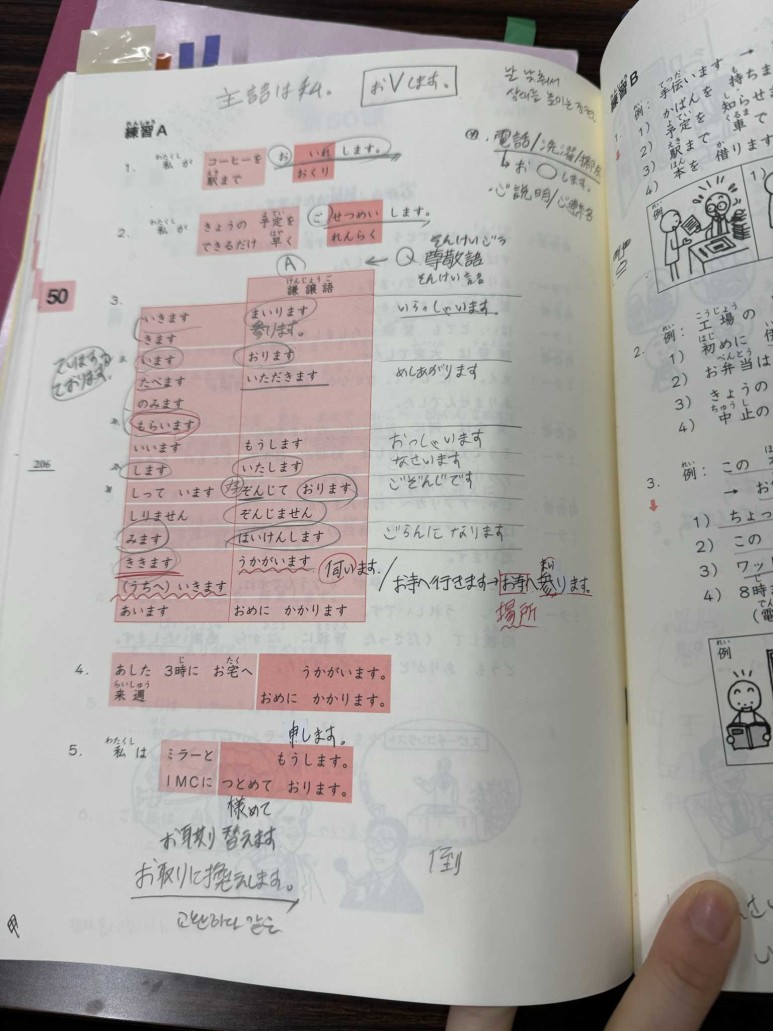 主語は私。 おVします。
낮춰서
練習A
1. 私が コーヒーを お いれ します。
駅まで おくり
電話/洗濯/
お〇します。
・ご説明/ご連絡
2. 私が きょうの 予定を ご せつめい します。
できるだけ 早く れんらく
A ← Q 尊敬語
50
3. 謙譲語
いきます まいります いらっしゃいます。
きます 参ります。
います おります
ています
ております。
たべます いただきます めしあがります
のみます
もらいます
いいます もうします おっしゃいます
します いたします なさいます
しって います ぞんじて おります ごぞんじです
しりません ぞんじません
みます はいけんします ごらんに なります
ききます うかがいます 伺います。
(うちへ) いきます / お寺へ行きます→お寺へ参ります。
場所
あいます おめに かかります
206
4. あした 3時に お宅へ うかがいます。
来週 おめに かかります。
申します。
5. 私は ミラーと もうします。
IMCに つとめて おります。
お取り替えます
お取りに換えします。
倒
練習B
例: 手伝います →
1. 1) かばんを 持ちま
2) 予定を 知らせま
3) 駅まで 車で
4) 本を 借ります
例 1)
例: 工場の
2. 1) 初めに
2) お弁当は
3) きょうの
4) 中止の
3. 例: この
→ お
1) ちょっ
2) この
3) ワッ
4) 8時
(電
例